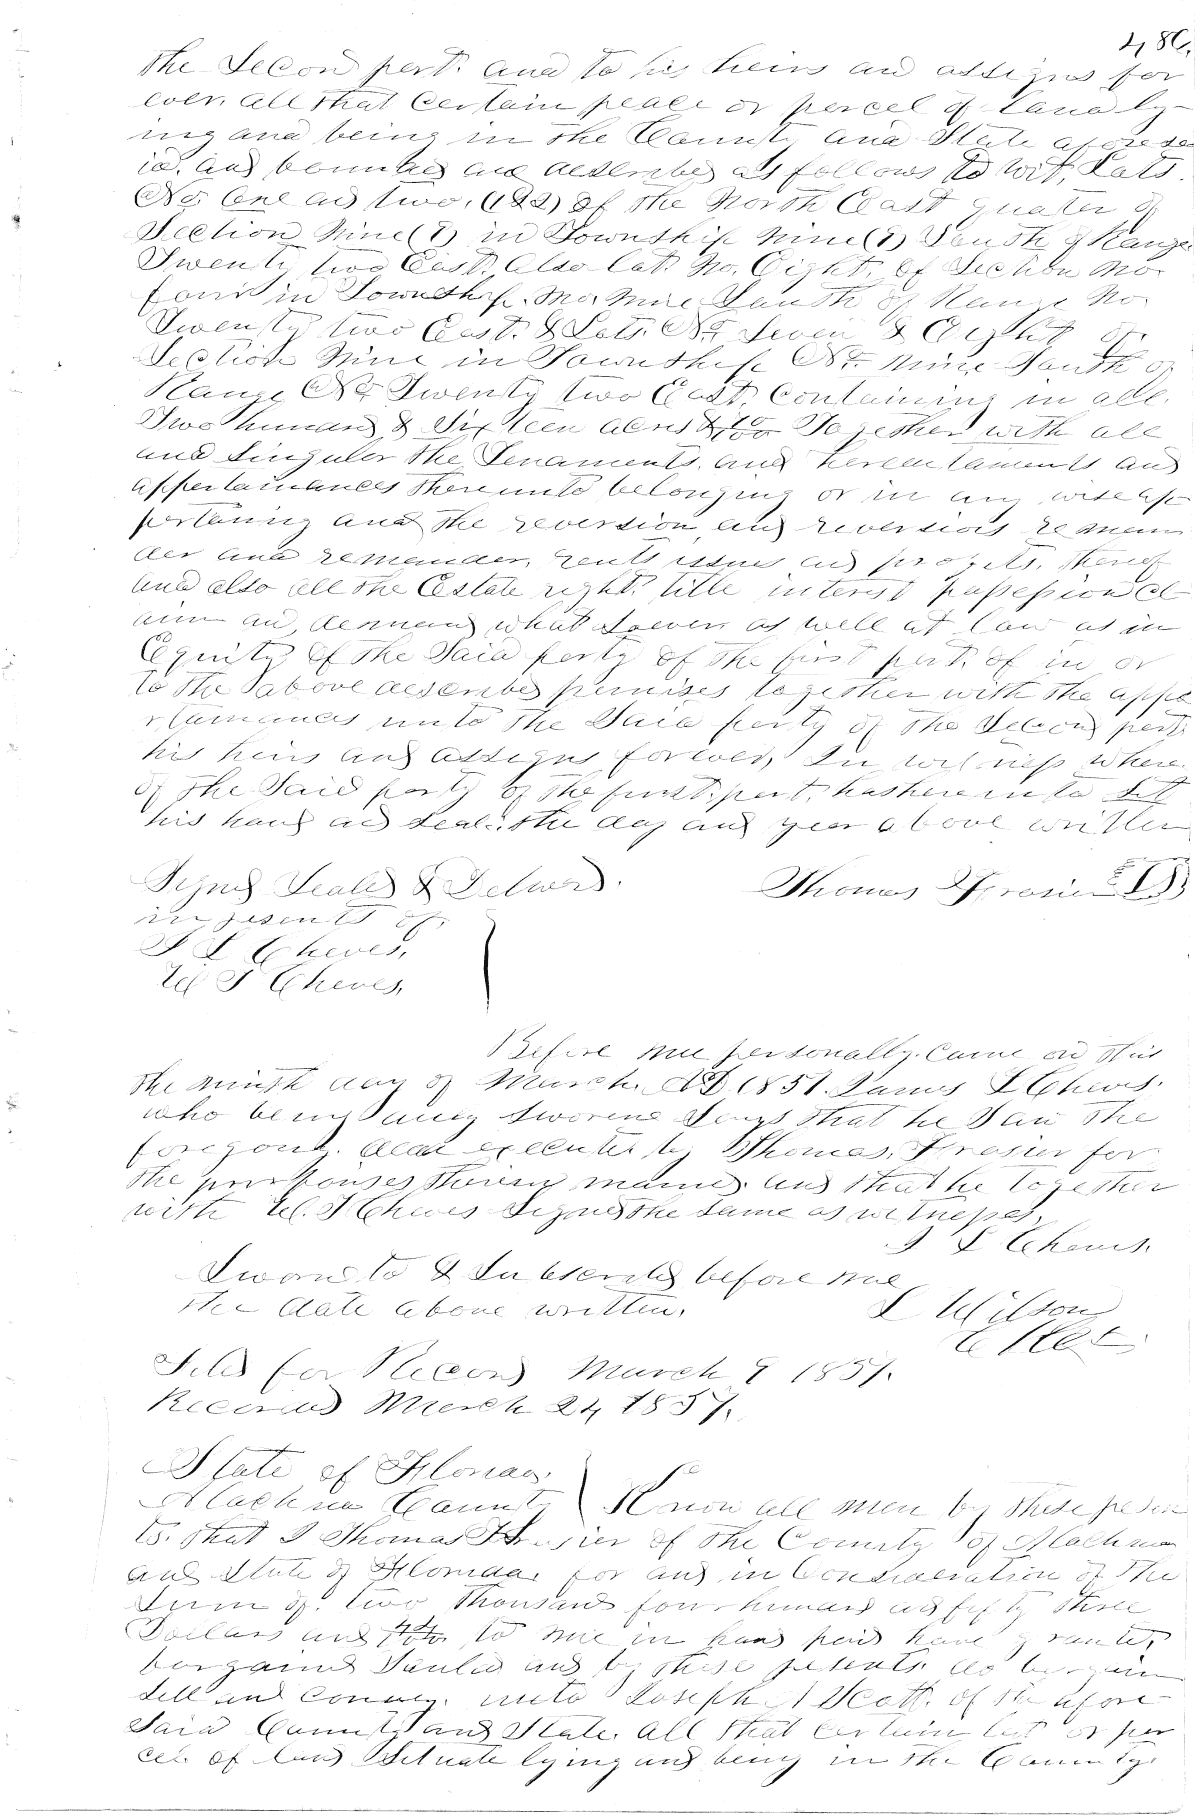 486
the Second part. and to his heirs and assigns for
ever. all that Certain peace or parcel of Land ly-
ing and being in the County and State aforesa
id. and bounded and described as follows to wit, Lots
No. One and two, (1&2) of the North East quater of
Section Nine (9) in Township Nine (9) South of Range
Twenty two East. also Lot. No. Eight. of Section No.
four in Township. No. Nine South of Range No.
Twenty two East. & Lots. No. Seven & Eight of
Section Nine in Township No. Nine South of
Range No. Twenty two East, Containing in all.
Two hundred & Sixteen acres & /100 Together with all
and Singuler the Tenaments. and hereditaments and
appertainances thereunto belonging or in any wise ap
pertaning and the reversion and reversions remain
der and remainder, rents issues and profits. thereof
and also all the Estate right. title interest possession cl
aim and, demand what Soever as well at law as in
Equity of the Said party of the first part. of in or
to the above described premises together with the appe
rtainances unto the Said party of the Second part
his heirs and assigns forever, In witness where.
of the Said party of the first. part. has hereunto Set
his hand and Seal. the day and year above written
Signed Sealed & Delivered.
in presents of.
Thomas Frasier
J L Cheves,
W J Cheves,
Before me personally. Came on this
the ninth day of March. AD 1857. James L Cheves.
who being duly Sworene Says that he Saw the
foregoing. deed executed by Thomas. Frasier for
the purpouses therein named. and that he together
with W. J Cheves Signed the same as witnesses.
J L Cheves.
Sworn to & Subscribed before me
the date above written.
L Wilson
Clk
Filed for Record March 9 1857.
Recorded March 24 1857.
State of Florida.
Alachua County Know all men by these presen
ts. that I Thomas Frasier of the County of Alachua
and State of Florida, for and in Consideration of the
Sum of. two thousand four hundred and fifty three
Dollars and /100 to me in hand paid have granted,
bargained Sould and by these presents. do bargain
Sell and Convey. unto Joseph A Scott. of the afore-
Said County and State. all that certain lot or par
cel. of land Situate lying and being in the County.